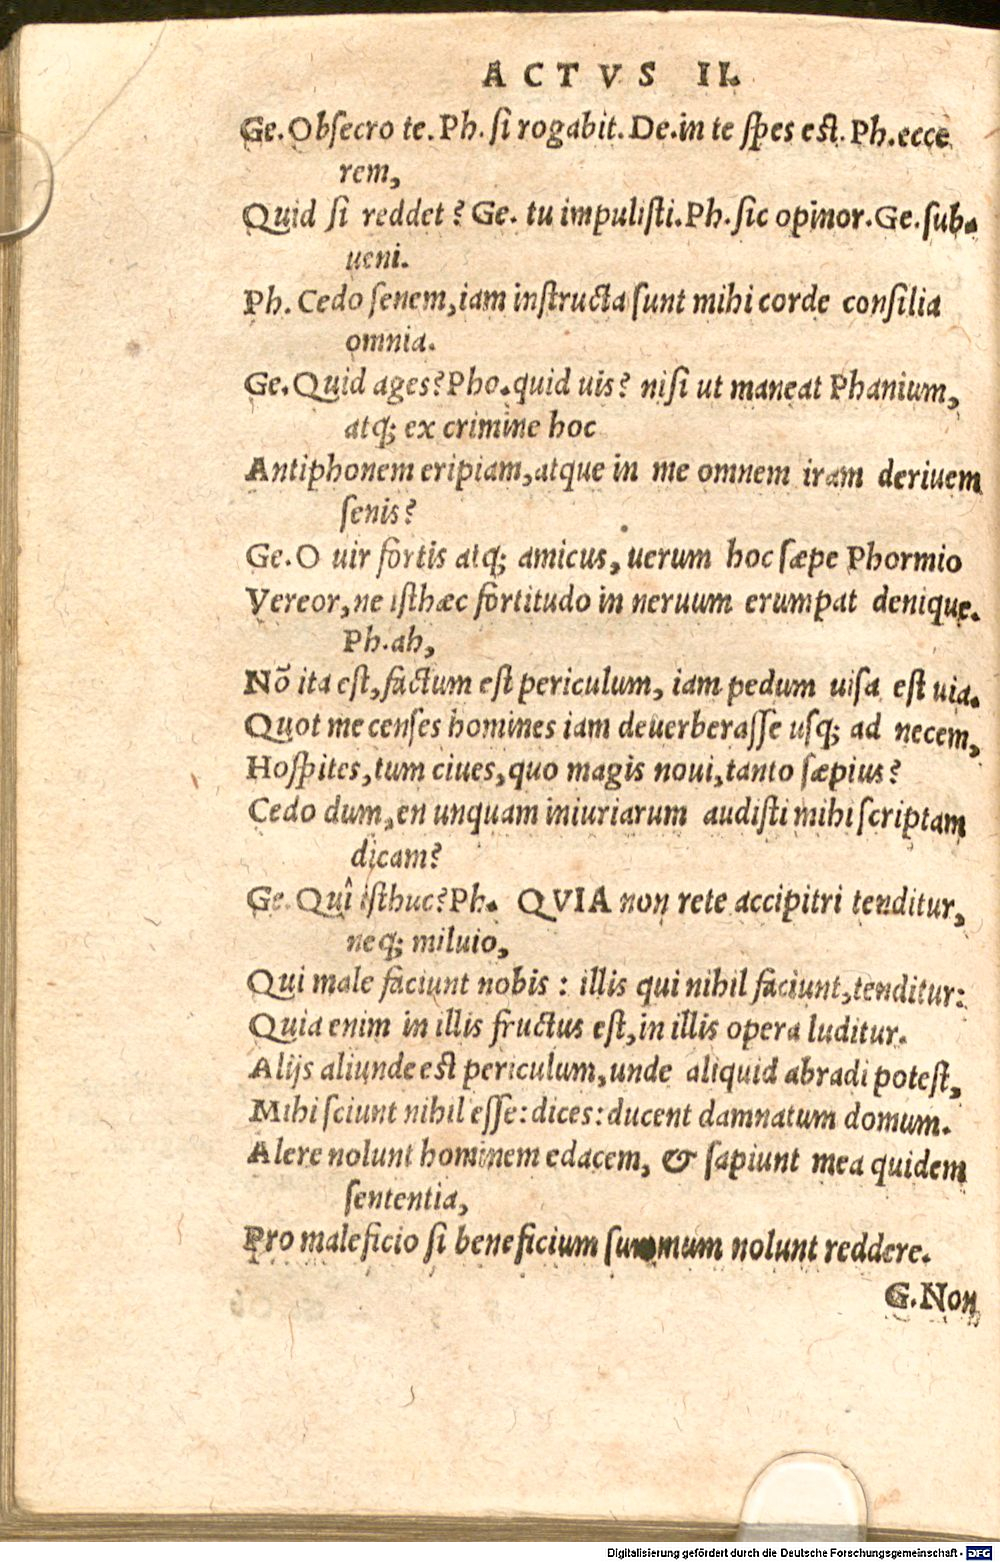 ACTVS II.
Ge. Obſecro te. Ph. ſi rogabit. De. in te ſpes eſt. Ph. ecce
rem,
Quid ſi reddet? Ge. tu impuliſti. Ph. ſic opinor. Ge. ſub-
ueni.
Ph. Cedo ſenem, iam inſtructa ſunt mihi corde conſilia
omnia.
Ge. Quid ages? Pho. quid uis? niſi ut maneat Phanium,
atq; ex crimine hoc
Antiphonem eripiam, atque in me omnem iram deriuem
ſenis?
Ge. O uir fortis atq; amicus, uerum hoc ſæpe Phormio
Vereor, ne iſthæc fortitudo in neruum erumpat denique.
Ph. ah,
Nõ ita eſt, factum eſt periculum, iam pedum uiſa eſt uia.
Quot me cenſes homines iam deuerberaſſe uſq; ad necem,
Hoſpites, tum ciues, quo magis noui, tanto ſæpius?
Cedo dum, en unquam iniuriarum audiſti mihi ſcriptam
dicam?
Ge. Quî iſthuc? Ph. QVIA non rete accipitri tenditur,
neq; miluio,
Qui male faciunt nobis: illis qui nihil faciunt, tenditur:
Quia enim in illis fructus eſt, in illis opera luditur.
Alijs aliunde eſt periculum, unde aliquid abradi poteſt,
Mihi ſciunt nihil eſſe: dices: ducent damnatum domum.
Alere nolunt hominem edacem, & ſapiunt mea quidem
ſententia,
Pro maleficio ſi beneficium ſummum nolunt reddere.
G. Non
Digitalisierung gefördert durch die Deutsche Forschungsgemeinschaft - DFG